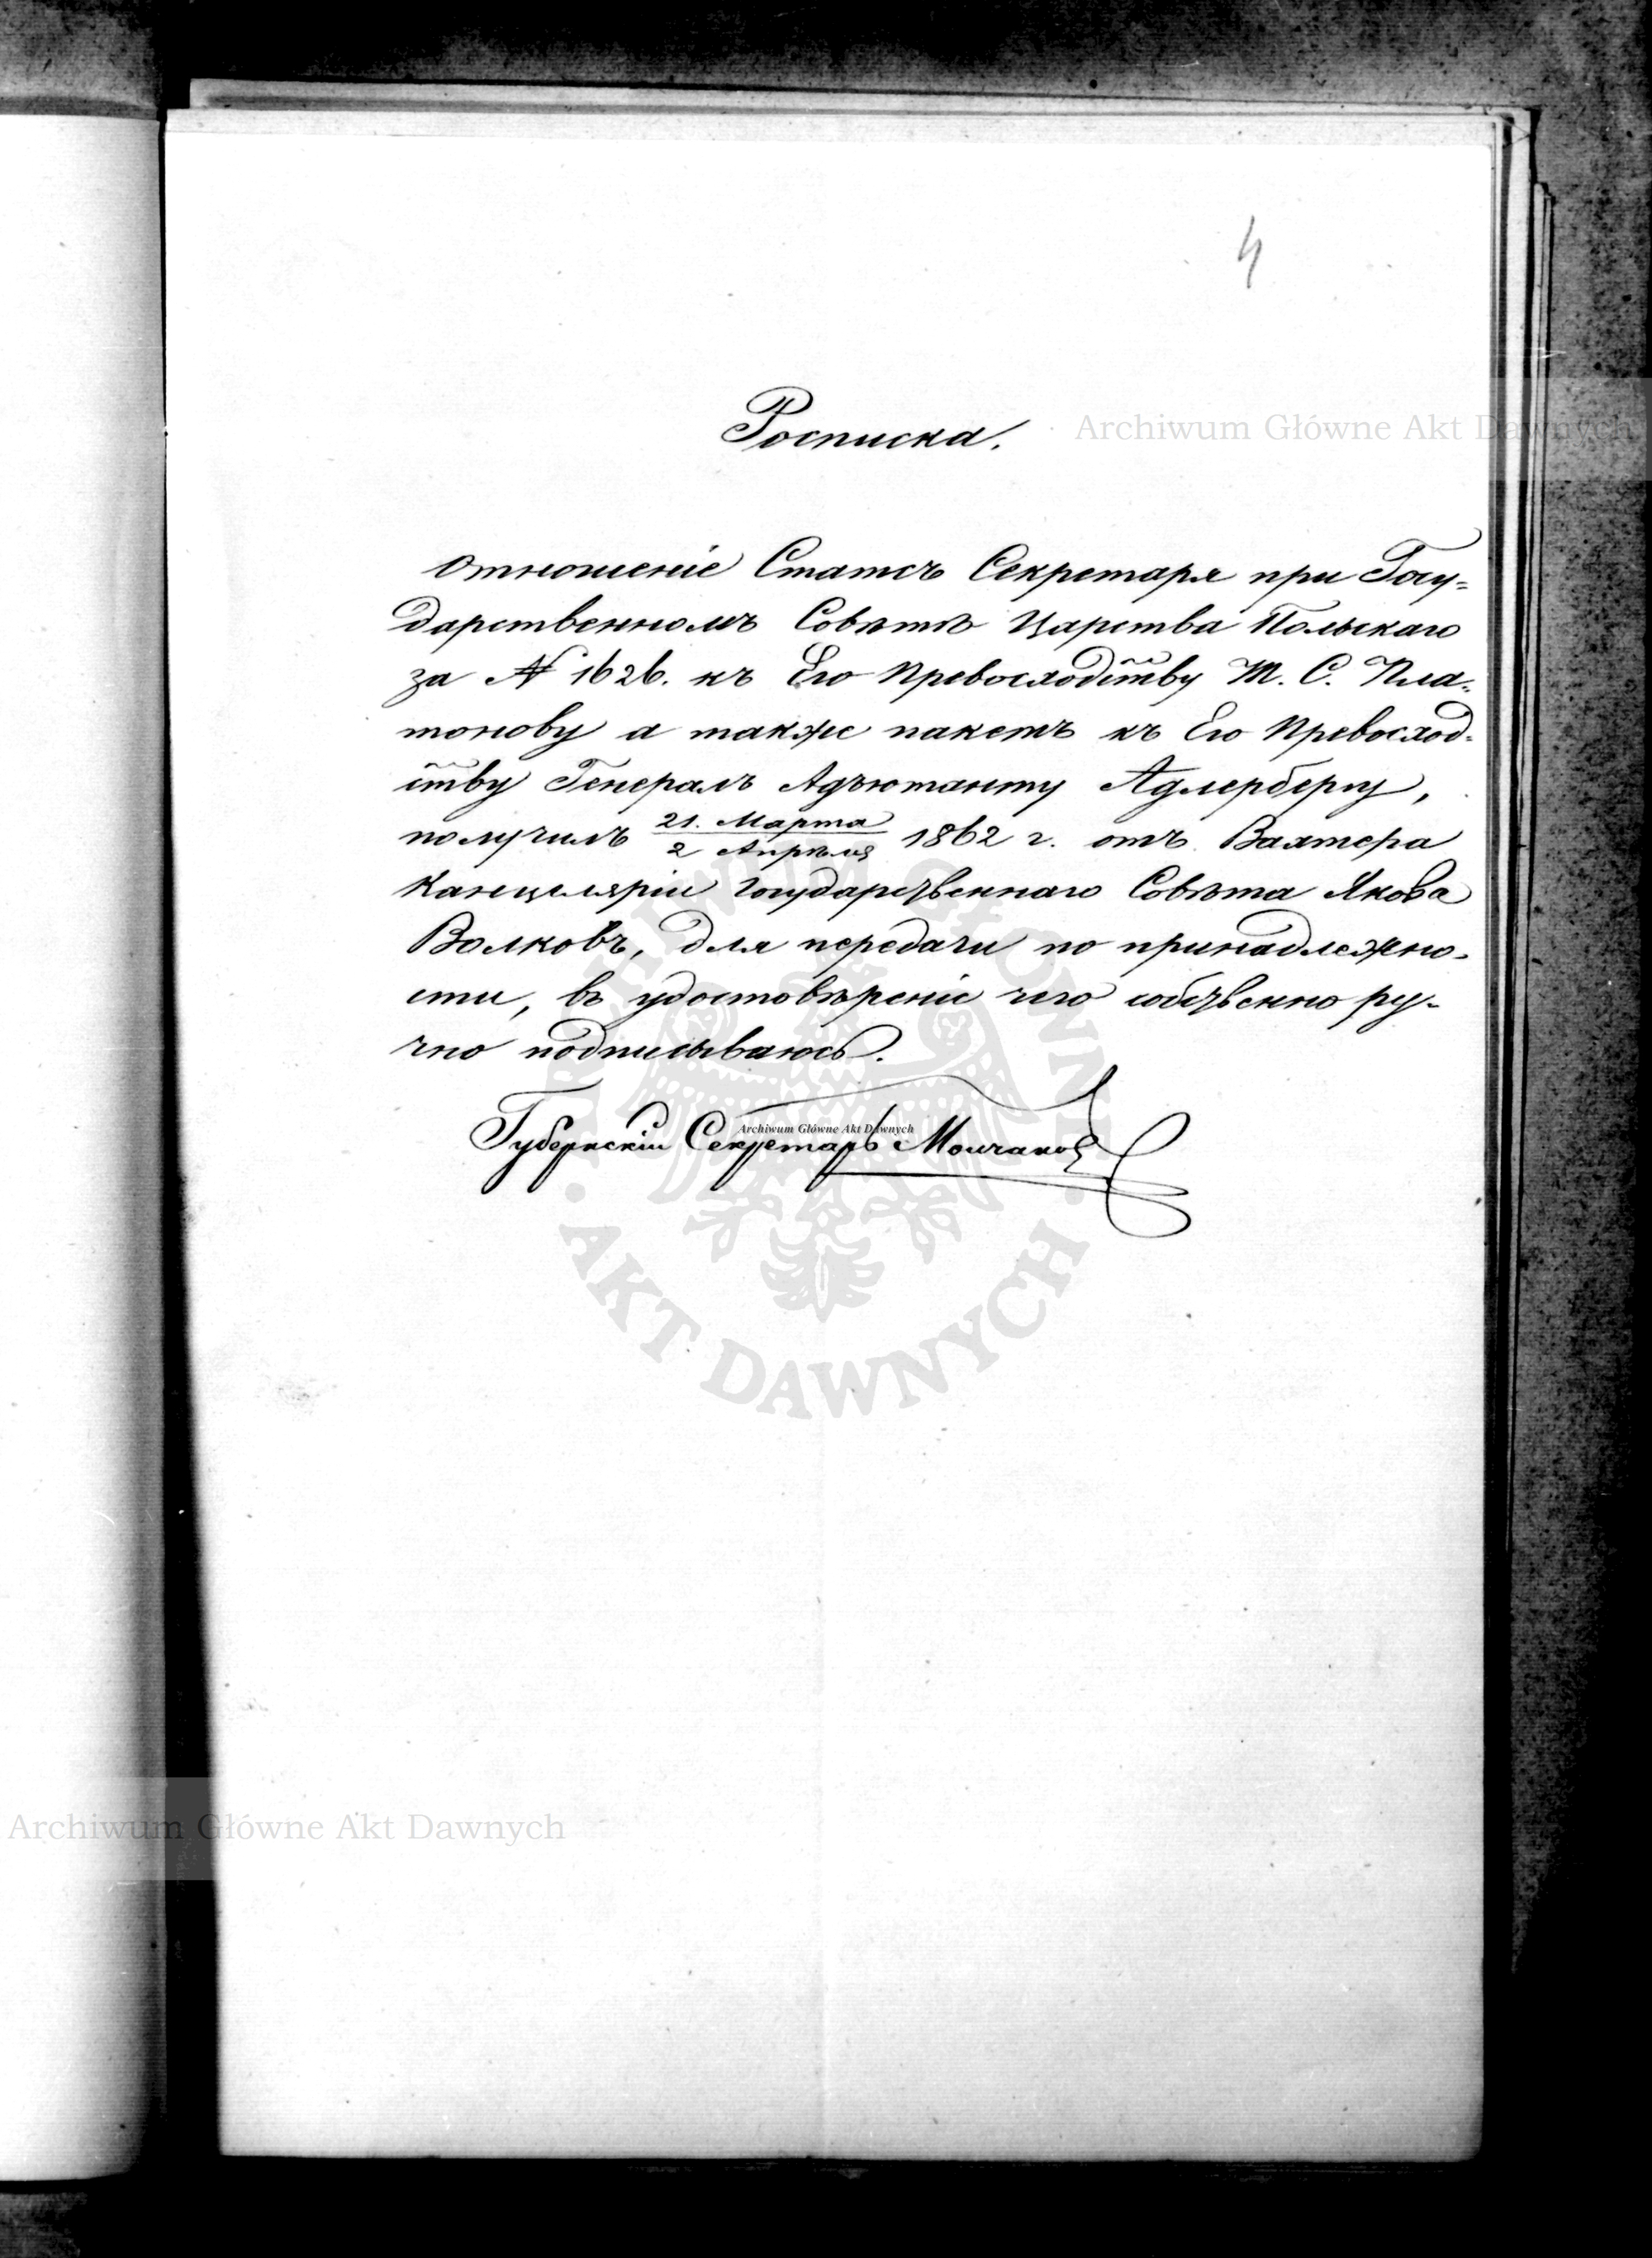 4
Росписка.
Archiwum Główne Akt Dawnych
Отношеніе Статсъ Секретаря при Госу=
дарственномъ Совѣтѣ Царства Польскаго
за № 1626. къ Его Превосходству Т. С. Пла=
тонову а также пакетъ къ Его Превосход=
ству Генералъ Адъютанту Адлербергу,
получилъ 21. Марта / 2 Апрѣля 1862 г. отъ Вахтера
Канцеляріи Государственнаго Совѣта Якова
Волковъ, для передачи по принадлежно=
сти, въ удостовѣреніе чего собственно ру=
чно подписываюсь.
Губернскій Секретарь
Archiwum Główne Akt Dawnych
ARCHIWUM GŁÓWNE
AKT DAWNYCH
Archiwum Główne Akt Dawnych